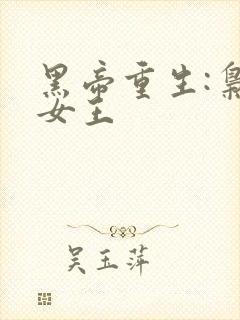 黑帝重生:枭
女王
吴玉萍